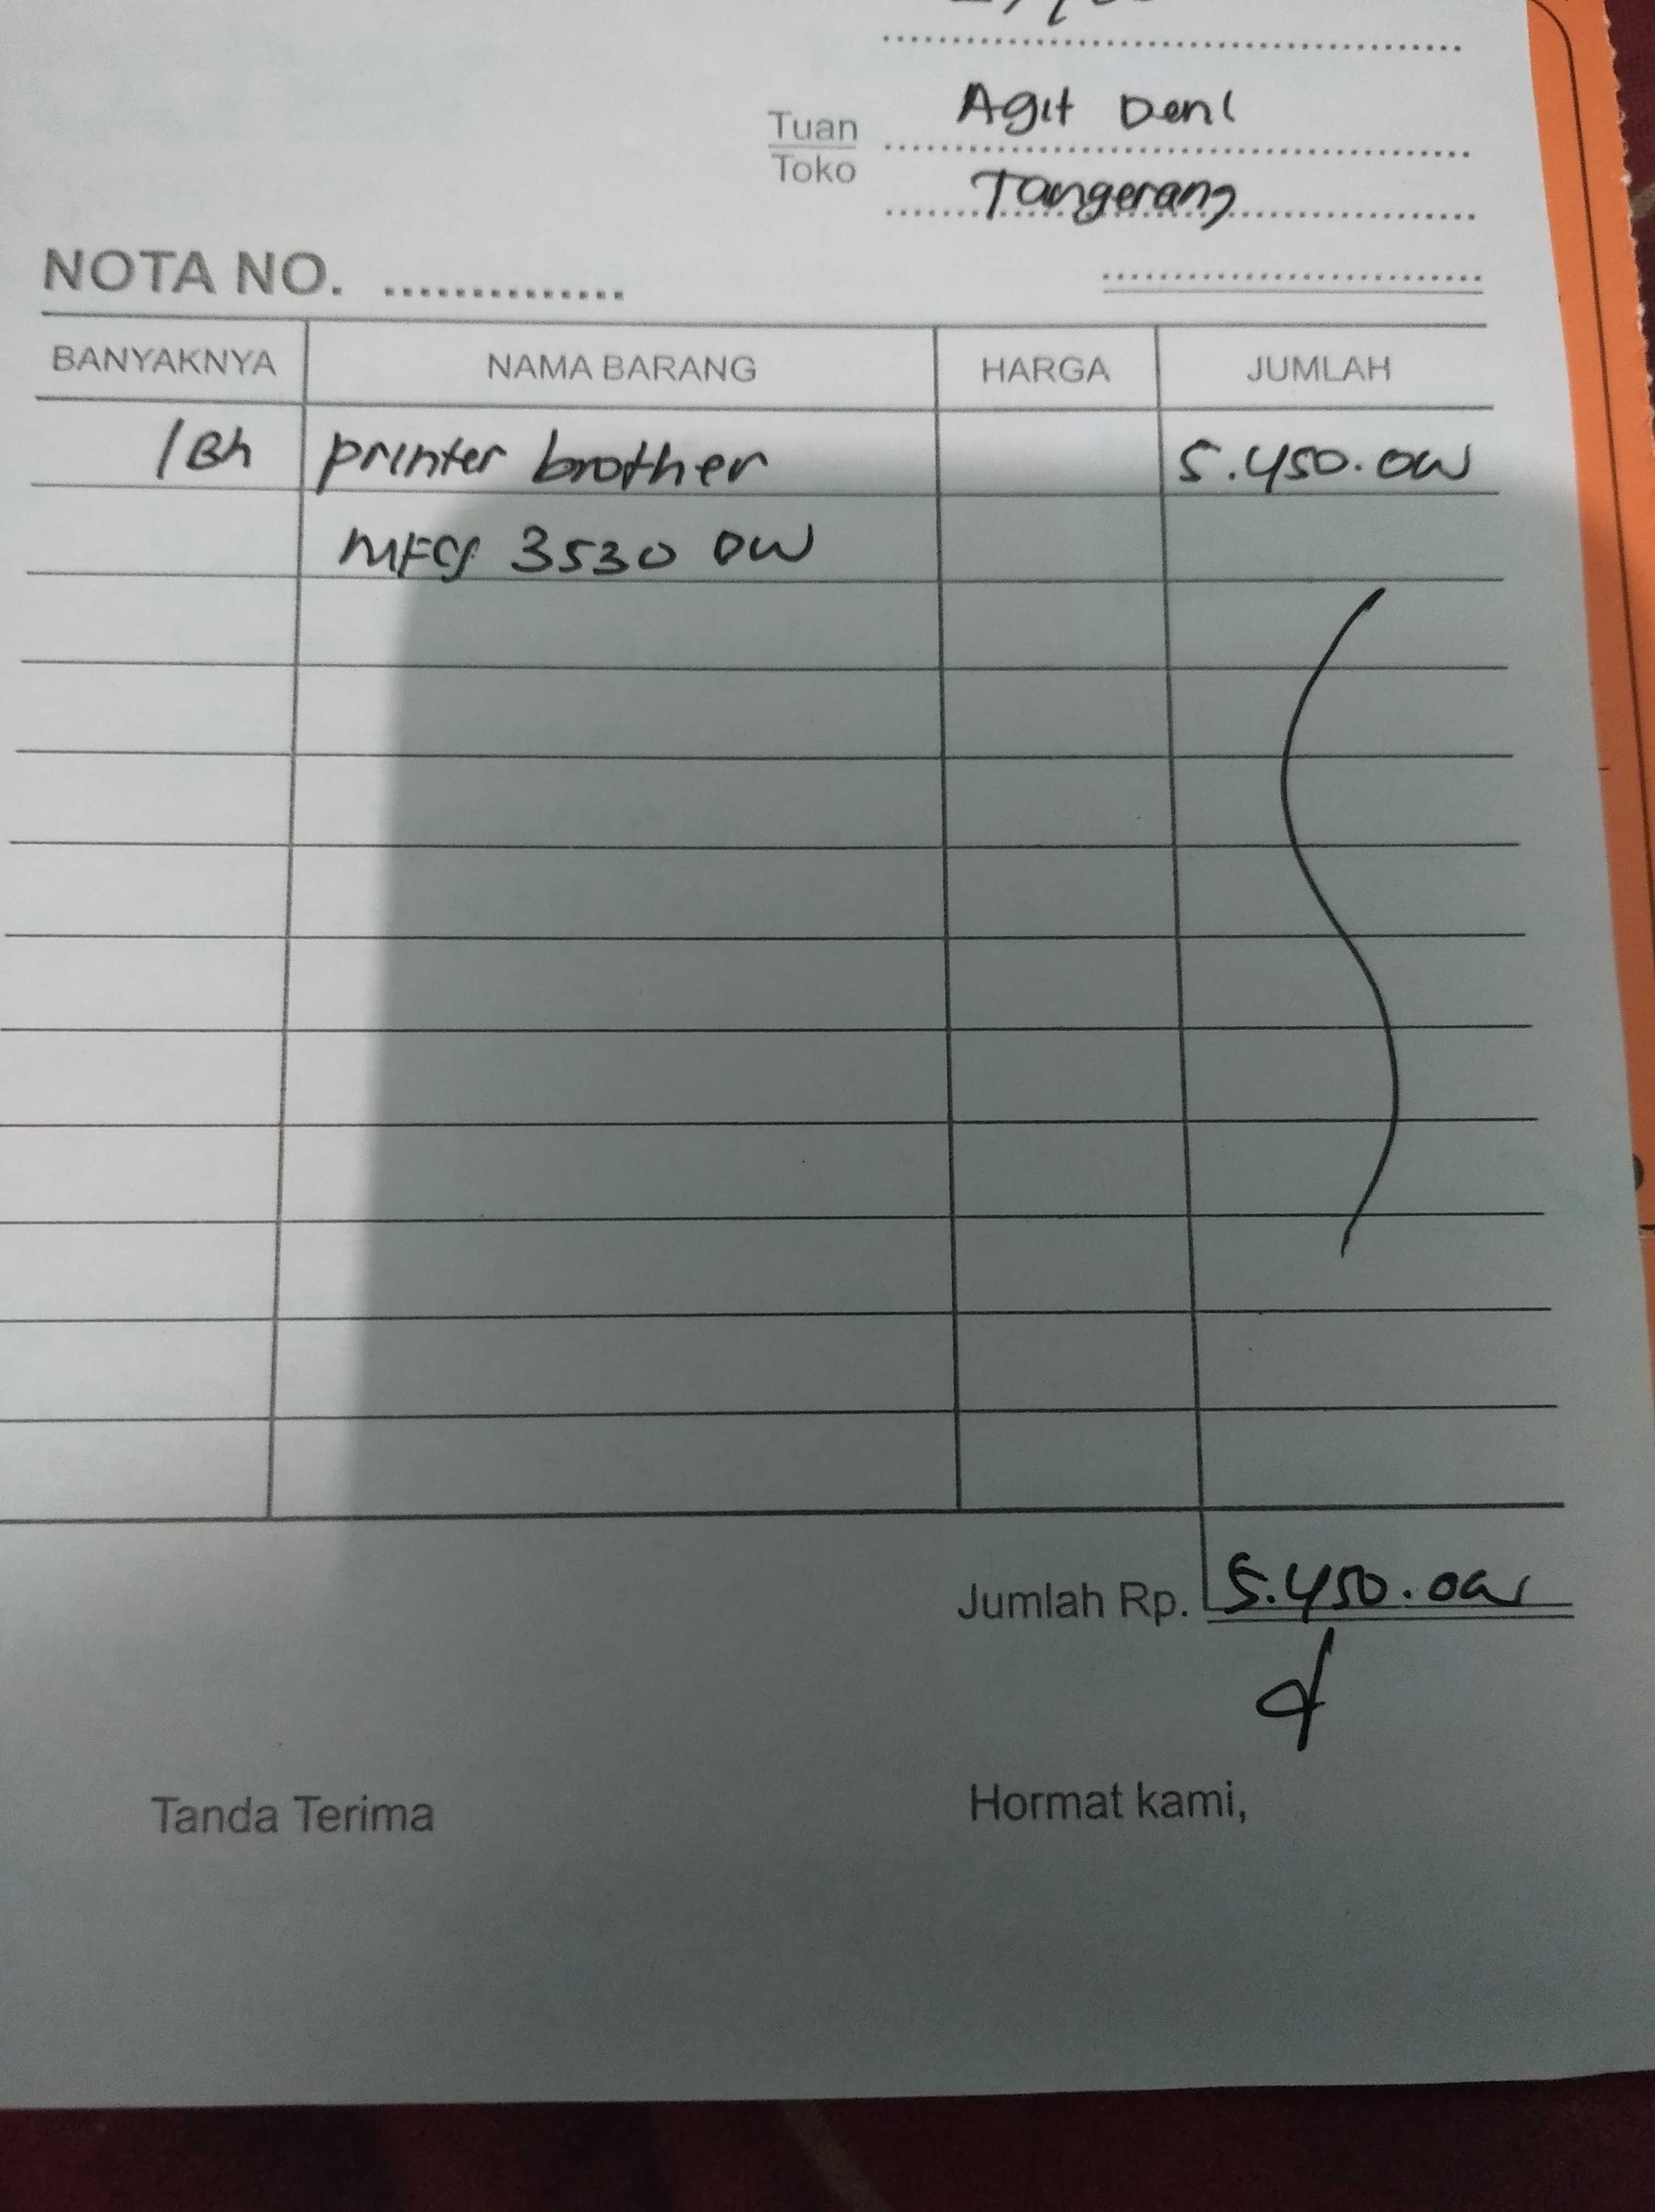 Tuan Agit Deni
Toko Tangerang
NOTA NO. ..............
BANYAKNYA NAMA BARANG HARGA JUMLAH
1 Bh printer brother 5.450.000
MFCJ 3530 DW
Jumlah Rp. 5.450.000
Tanda Terima Hormat kami,